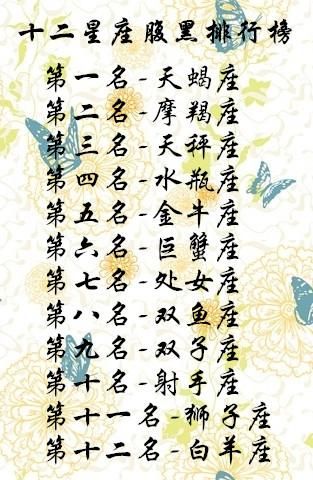 十二星座腹黑排行榜
第一名-天蝎座
第二名-摩羯座
第三名-天秤座
第四名-水瓶座
第五名-金牛座
第六名-巨蟹座
第七名-处女座
第八名-双鱼座
第九名-双子座
第十名-射手座
第十一名-狮子座
第十二名-白羊座